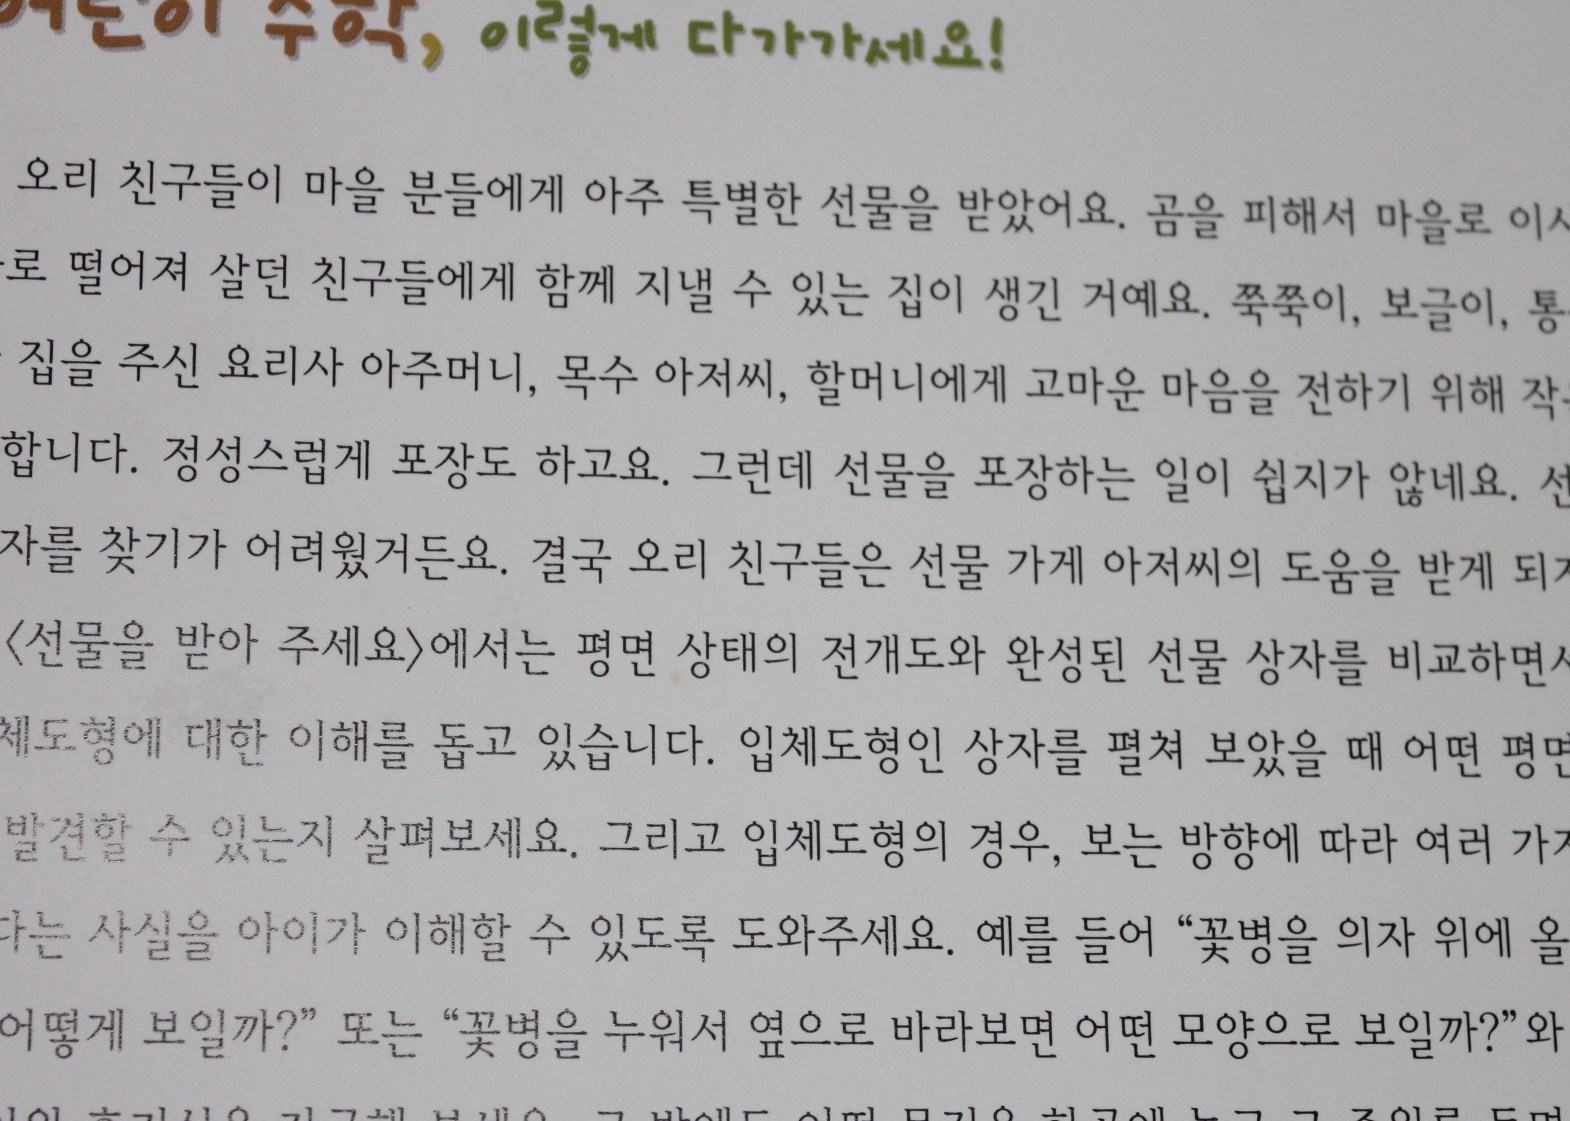 수학, 이렇게 다가가세요!
오리 친구들이 마을 분들에게 아주 특별한 선물을 받았어요. 곰을 피해서 마을로
떨어져 살던 친구들에게 함께 지낼 수 있는 집이 생긴 거예요. 쭉쭉이, 보글이,
집을 주신 요리사 아주머니, 목수 아저씨, 할머니에게 고마운 마음을 전하기 위해
합니다. 정성스럽게 포장도 하고요. 그런데 선물을 포장하는 일이 쉽지가 않네요.
자를 찾기가 어려웠거든요. 결국 오리 친구들은 선물 가게 아저씨의 도움을 받게
〈선물을 받아 주세요〉에서는 평면 상태의 전개도와 완성된 선물 상자를 비교하면서
체도형에 대한 이해를 돕고 있습니다. 입체도형인 상자를 펼쳐 보았을 때 어떤 평면
발견할 수 있는지 살펴보세요. 그리고 입체도형의 경우, 보는 방향에 따라 여러
다는 사실을 아이가 이해할 수 있도록 도와주세요. 예를 들어 “꽃병을 의자 위에 올
어떻게 보일까?” 또는 “꽃병을 누워서 옆으로 바라보면 어떤 모양으로 보일까?”와